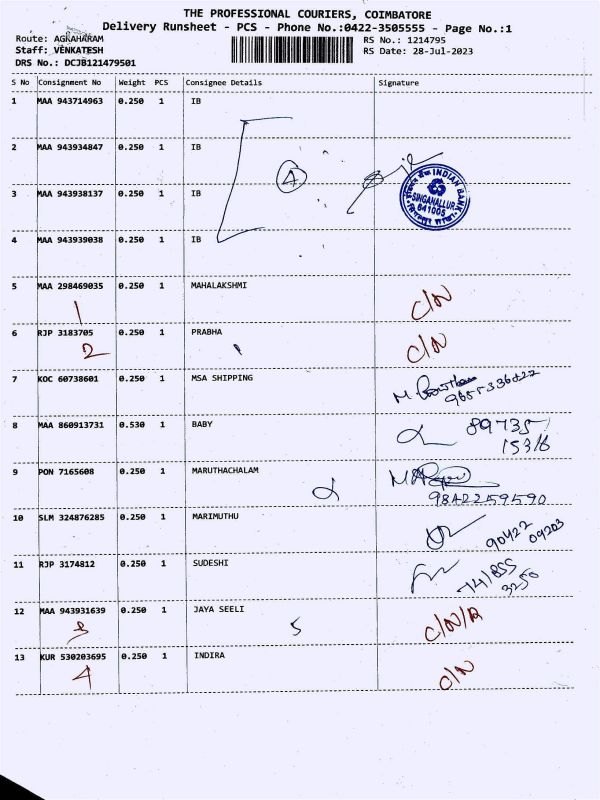 THE PROFESSIONAL COURIERS, COIMBATORE
Delivery Runsheet - PCS - Phone No.:0422-3505555 - Page No.:1
Route: AGRAHARAM
Staff: VENKATESH
DRS No.: DCJB121479501
RS No.: 1214795
RS Date: 28-Jul-2023
S No Consignment No Weight PCS Consignee Details Signature
1 MAA 943714963 0.250 1 IB
2 MAA 943934847 0.250 1 IB
4
3 MAA 943938137 0.250 1 IB
INDIAN BANK
SINGANALLUR
641005
4 MAA 943939038 0.250 1 IB
5 MAA 298469035 0.250 1 MAHALAKSHMI C/N
1
6 RJP 3183705 0.250 1 PRABHA C/N
2
7 KOC 60738601 0.250 1 MSA SHIPPING
9655336822
8 MAA 860913731 0.530 1 BABY 89735
15316
9 PON 7165608 0.250 1 MARUTHACHALAM
9842259590
10 SLM 324876285 0.250 1 MARIMUTHU
90422
09203
11 RJP 3174812 0.250 1 SUDESHI
3250
12 MAA 943931639 0.250 1 JAYA SEELI C/N/R
3 5
13 KUR 530203695 0.250 1 INDIRA C/N
4